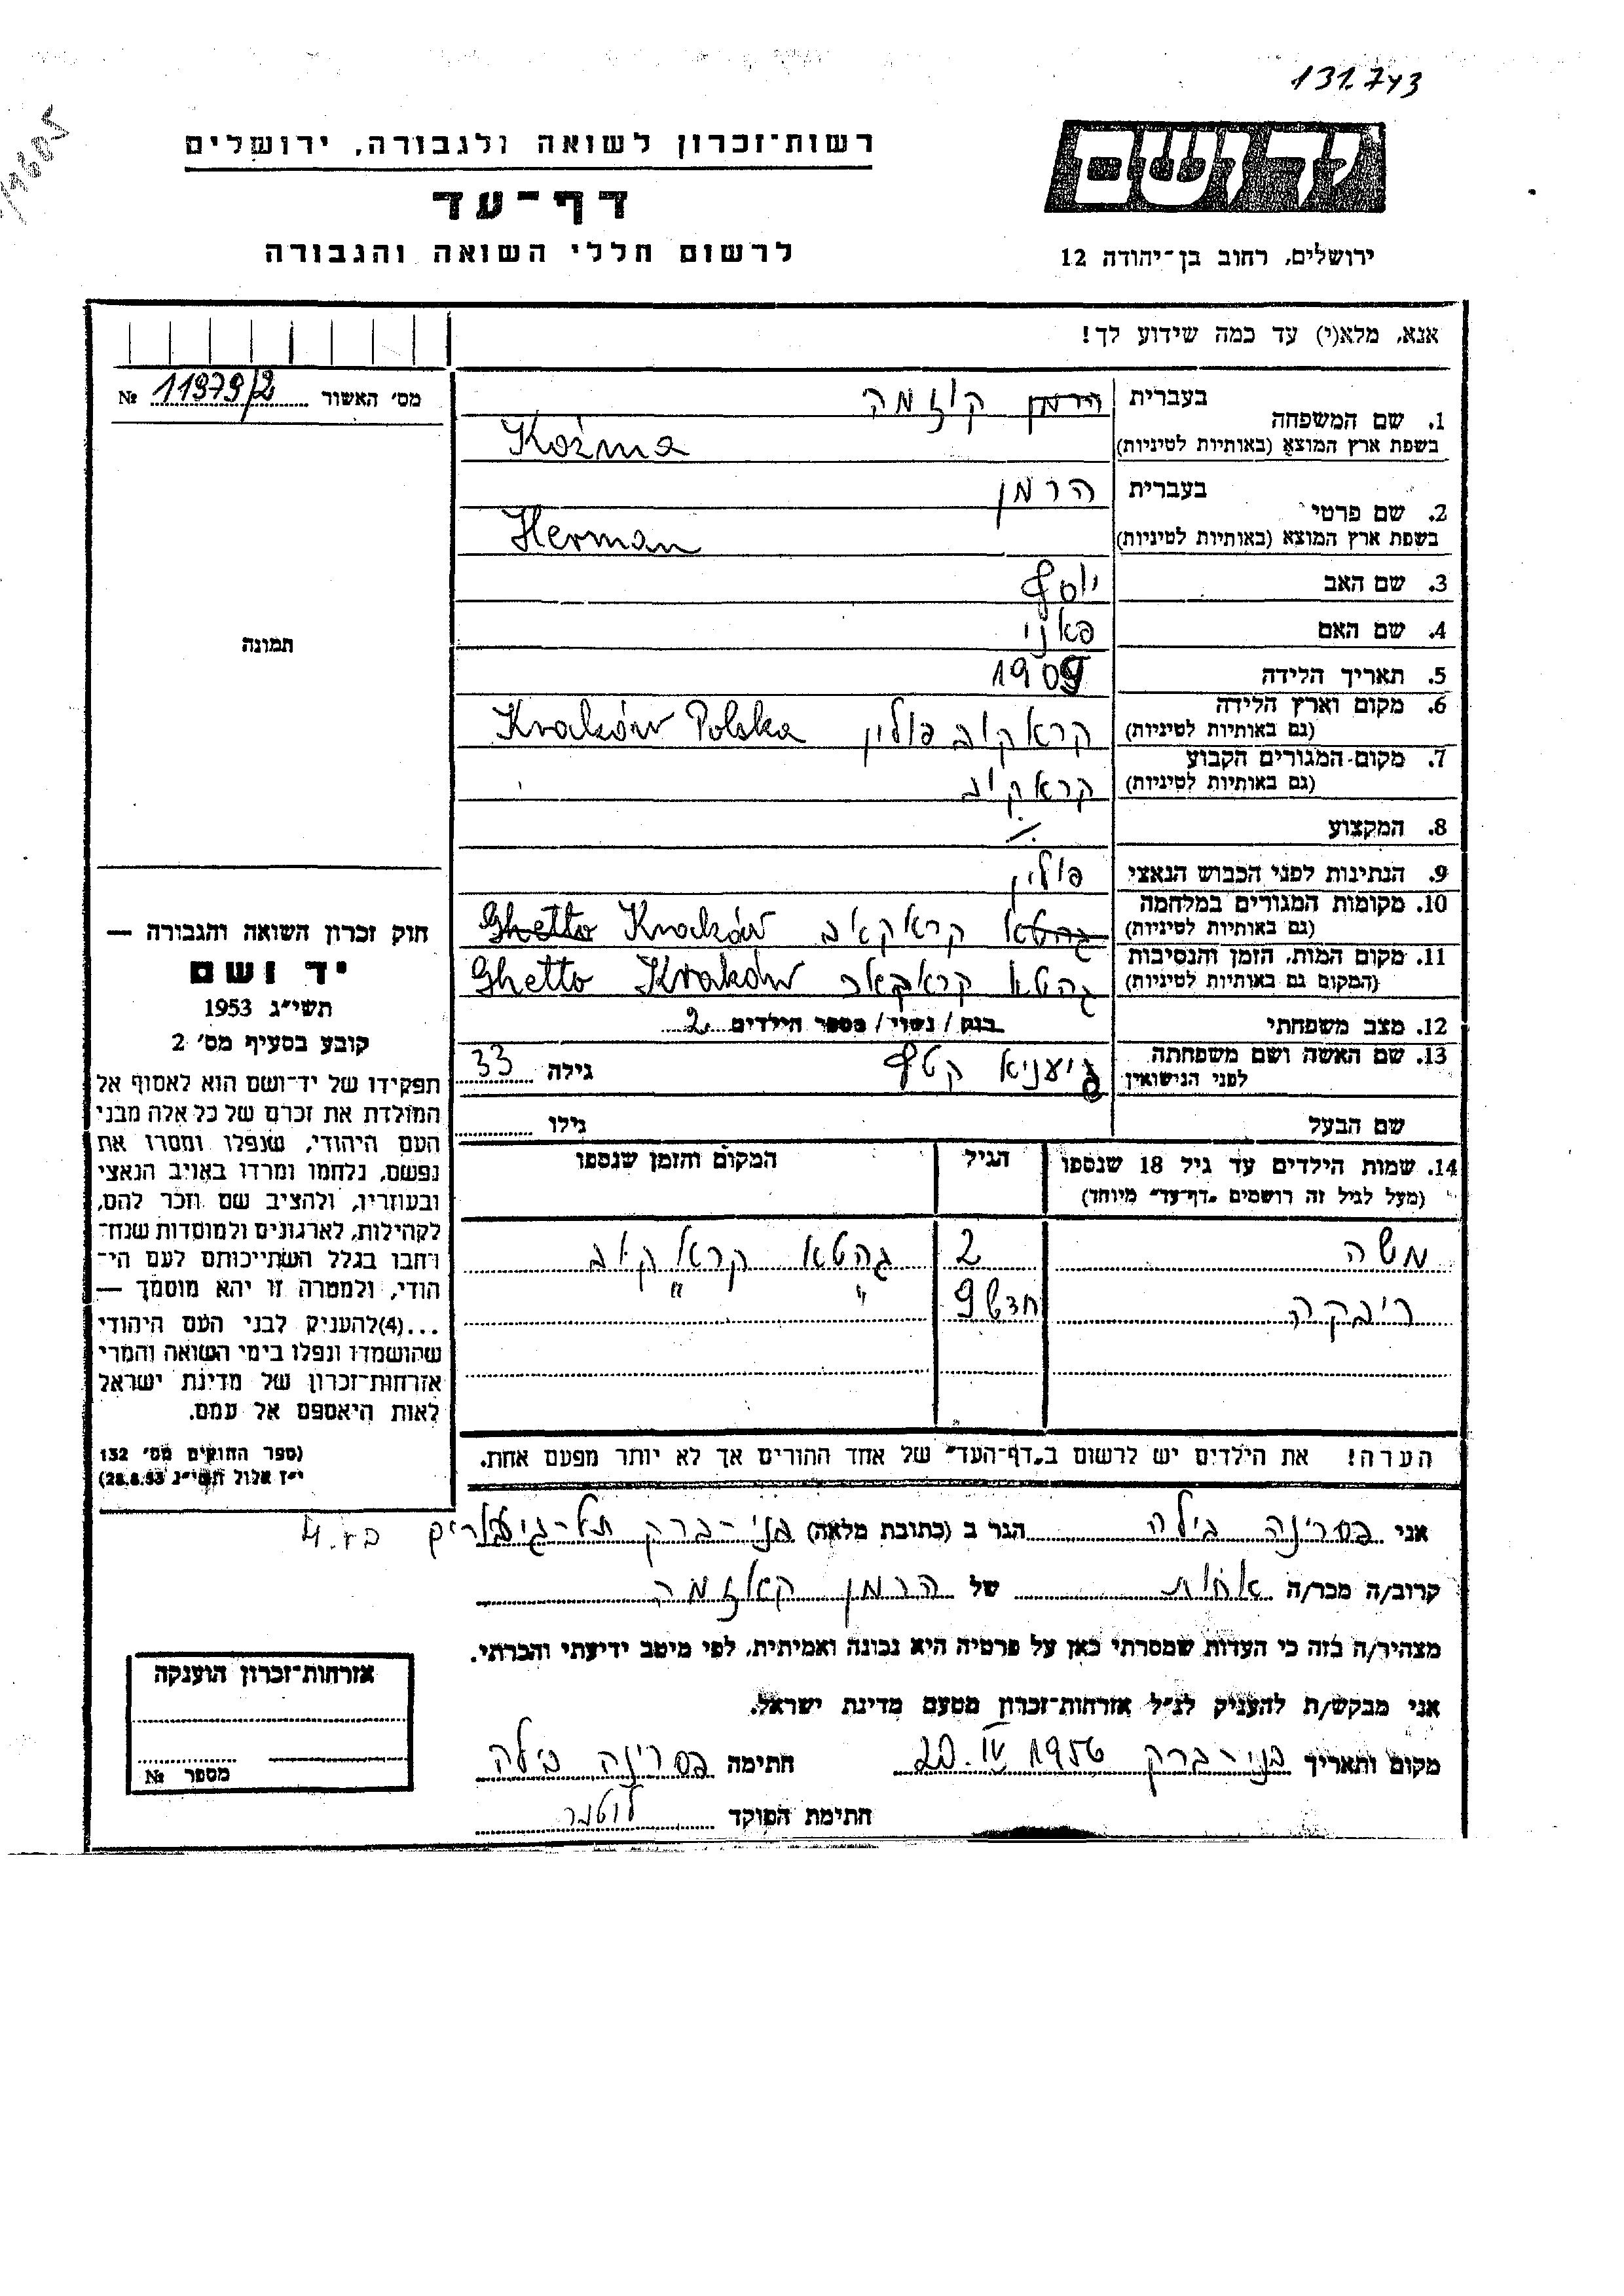 131.743
רשות־זכרון לשואה ולגבורה, ירושלים
יד ושם
דף־עד
לרשום חללי השואה והגבורה
ירושלים, רחוב בן־יהודה 12
אנא, מלא(י) עד כמה שידוע לך!
מס׳ האשור 11979/2 №
1. שם המשפחה
בעברית הרמן קוזמה
בשפת ארץ המוצא (באותיות לטיניות) Koźma
2. שם פרטי
בעברית הרמן
בשפת ארץ המוצא (באותיות לטיניות) Herman
3. שם האב יוסף
4. שם האם פאני
5. תאריך הלידה 1909
6. מקום וארץ הלידה
(גם באותיות לטיניות) קראקוב פולין Kraków Polska
7. מקום־המגורים הקבוע
(גם באותיות לטיניות) קראקוב
8. המקצוע ./.
9. הנתינות לפני הכבוש הנאצי פולין
10. מקומות המגורים במלחמה
(גם באותיות לטיניות) גהטא קראקאב Ghetto Kraków
11. מקום המות, הזמן והנסיבות
(המקום גם באותיות לטיניות) גהטא קראקאב Ghetto Kraków
12. מצב משפחתי בנם / נשוי / מספר הילדים 2
13. שם האשה ושם משפחתה
לפני הנישואין גיעניא קטף גילה 33
שם הבעל גילו
14. שמות הילדים עד גיל 18 שנספו
(מעל לגיל זה רושמים „דף־עד״ מיוחד)
הגיל
המקום והזמן שנספו
משה 2 גהטא קראקוב
ריבקה 9 חדש " "
הערה! את הילדים יש לרשום ב„דף־העד״ של אחד ההורים אך לא יותר מפעם אחת.
תמונה
חוק זכרון השואה והגבורה —
יד ושם
תשי״ג 1953
קובע בסעיף מס׳ 2
תפקידו של יד־ושם הוא לאסוף אל
המולדת את זכרם של כל אלה מבני
העם היהודי, שנפלו ומסרו את
נפשם, נלחמו ומרדו באויב הנאצי
ובעוזריו, ולהציב שם וזכר להם,
לקהילות, לארגונים ולמוסדות שנח־
רבו בגלל השתייכותם לעם הי־
הודי, ולמטרה זו יהא מוסמך —
...(4)להעניק לבני העם היהודי
שהושמדו ונפלו בימי השואה והמרי
אזרחות־זכרון של מדינת ישראל
לאות היאספם אל עמם.
(ספר החוקים מס׳ 132
י״ז אלול תשי״ג 28.8.53)
אני בסרינה בילה הגר ב (כתובת מלאה) בני־ברק תל־גיבורים
קרוב/ה מכר/ה אחות של הרמן קאזמה
מצהיר/ה בזה כי העדות שמסרתי כאן על פרטיה היא נכונה ואמיתית, לפי מיטב ידיעתי והכרתי.
אני מבקש/ת להעניק לנ״ל אזרחות־זכרון מטעם מדינת ישראל.
מקום ותאריך בני־ברק 20.IV 1956 חתימה בסרינה בילה
חתימת הפוקד
אזרחות־זכרון הוענקה
מספר №